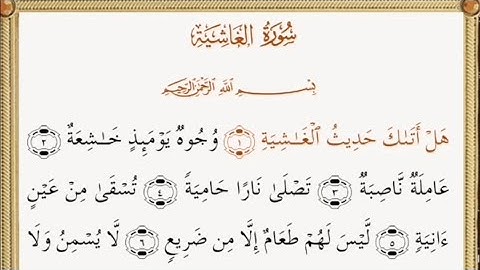 سُورَةُ الغَاشِيَةِ
بِسْمِ اللَّهِ الرَّحْمَٰنِ الرَّحِيمِ
هَلْ أَتَىٰكَ حَدِيثُ ٱلْغَـٰشِيَةِ ١ وُجُوهٌ يَوْمَئِذٍ خَـٰشِعَةٌ ٢
عَامِلَةٌ نَّاصِبَةٌ ٣ تَصْلَىٰ نَارًا حَامِيَةً ٤ تُسْقَىٰ مِنْ عَيْنٍ
ءَانِيَةٍ ٥ لَّيْسَ لَهُمْ طَعَامٌ إِلَّا مِن ضَرِيعٍ ٦ لَّا يُسْمِنُ وَلَا